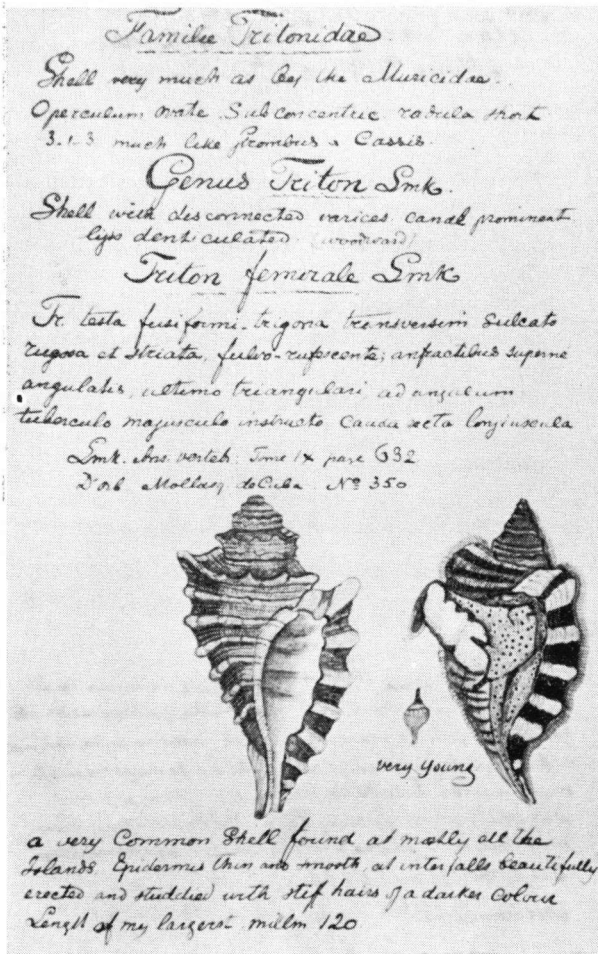 Familie Tritonidae
Shell very much as by the Muricidae.
Operculum ovate. Subconcentric radula short
3.1.3 much like Strombus & Cassis.
Genus Triton Lmk.
Shell with desconnected varices. canal prominent
lips denticulated. (woodward)
Triton femorale Lmk
Tr. testa fusiformi-trigona transversim sulcato
rugosa et striata, fulvo-rufescente; anfractibus superne
angulatis, ultimo triangulari ad angulum
tuberculo majusculo instructo cauda recta longiuscula
Lmk. Ans. verteb. Tome IX page 632
D'orb. Mollusq. de Cuba. No 350
very young
a very Common Shell found at mostly all the
Islands. Epidermis thin and smooth, at interfalls beautifully
erected and studdied with stif hairs of a darker Colour
Lengst of my largerst millm 120